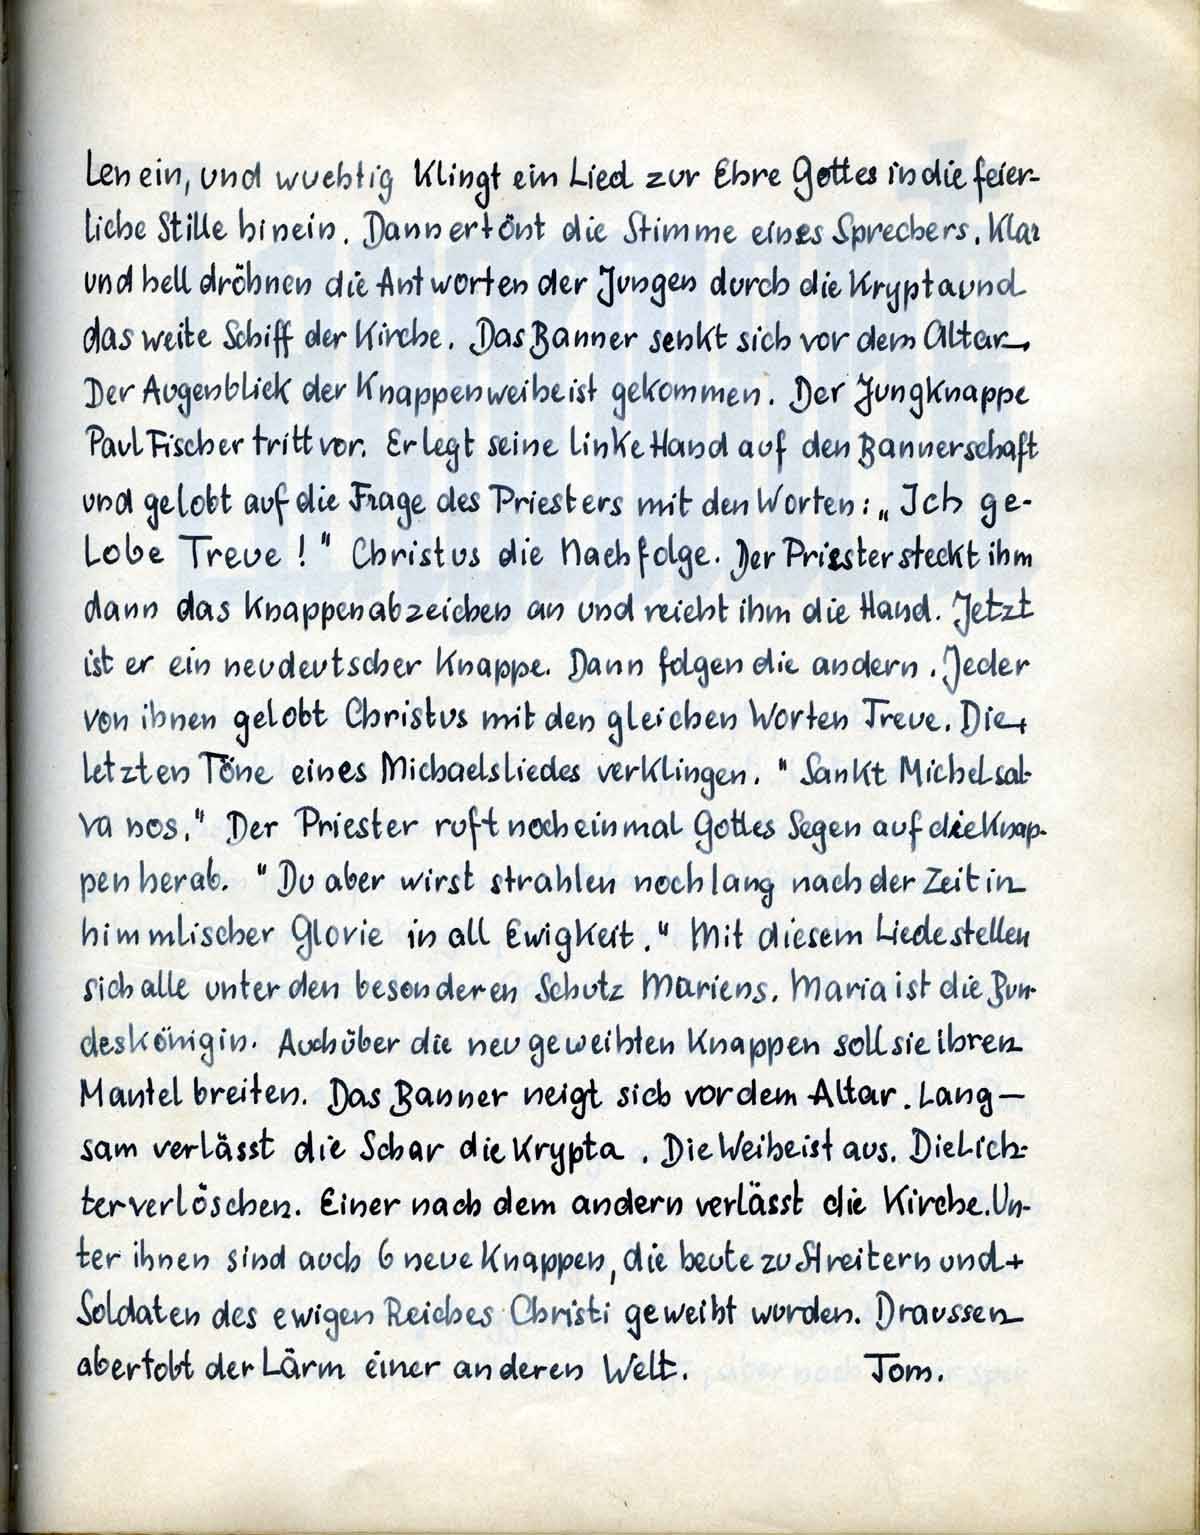 len ein, und wuchtig klingt ein Lied zur Ehre Gottes in die feier-
liche Stille hinein. Dann ertönt die Stimme eines Sprechers. Klar
und hell dröhnen die Antworten der Jungen durch die Krypta und
das weite Schiff der Kirche. Das Banner senkt sich vor dem Altar.
Der Augenblick der Knappenweihe ist gekommen. Der Jungknappe
Paul Fischer tritt vor. Er legt seine linke Hand auf den Bannerschaft
und gelobt auf die Frage des Priesters mit den Worten: „Ich ge-
lobe Treue!" Christus die Nachfolge. Der Priester steckt ihm
dann das Knappenabzeichen an und reicht ihm die Hand. Jetzt
ist er ein neudeutscher Knappe. Dann folgen die andern. Jeder
von ihnen gelobt Christus mit den gleichen Worten Treue. Die
letzten Töne eines Michaelsliedes verklingen. "Sankt Michel sal-
va nos." Der Priester ruft noch einmal Gottes Segen auf die Knap-
pen herab. "Du aber wirst strahlen noch lang nach der Zeit in
himmlischer Glorie in all Ewigkeit." Mit diesem Liede stellen
sich alle unter den besonderen Schutz Mariens. Maria ist die Bun-
deskönigin. Auch über die neu geweihten Knappen soll sie ihren
Mantel breiten. Das Banner neigt sich vor dem Altar. Lang-
sam verlässt die Schar die Krypta. Die Weihe ist aus. Die Lich-
ter verlöschen. Einer nach dem andern verlässt die Kirche. Un-
ter ihnen sind auch 6 neue Knappen, die heute zu Streitern und
Soldaten des ewigen Reiches Christi geweiht wurden. Draussen
aber tobt der Lärm einer anderen Welt. Tom.